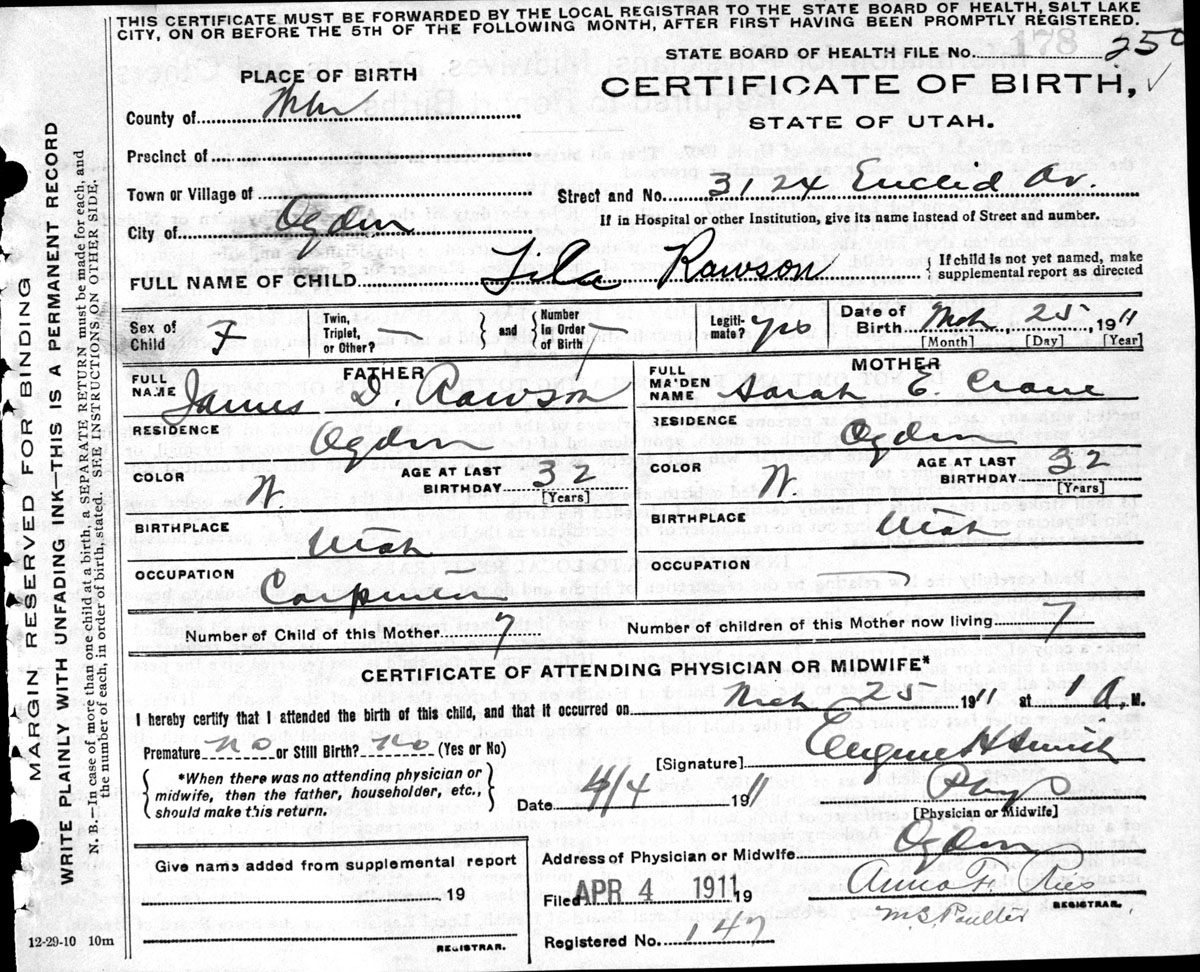 THIS CERTIFICATE MUST BE FORWARDED BY THE LOCAL REGISTRAR TO THE STATE BOARD OF HEALTH, SALT LAKE
CITY, ON OR BEFORE THE 5TH OF THE FOLLOWING MONTH, AFTER FIRST HAVING BEEN PROMPTLY REGISTERED.
STATE BOARD OF HEALTH FILE No. 178 250
PLACE OF BIRTH
CERTIFICATE OF BIRTH,
STATE OF UTAH.
County of
Precinct of
Town or Village of
Street and No. 3124 Euclid Av.
City of Ogden
If in Hospital or other Institution, give its name instead of Street and number.
FULL NAME OF CHILD Rawson { If child is not yet named, make
supplemental report as directed
Sex of Child F
Twin, Triplet, or Other? —
} and {
Number in Order of Birth
Legitimate? yes
Date of Birth Mch 25, 1911
[Month] [Day] [Year]
FATHER
FULL NAME James D. Rawson
MOTHER
FULL MAIDEN NAME Sarah E. Crane
RESIDENCE Ogden
RESIDENCE Ogden
COLOR W. AGE AT LAST BIRTHDAY 32 [Years]
COLOR W. AGE AT LAST BIRTHDAY 32 [Years]
BIRTHPLACE Utah
BIRTHPLACE Utah
OCCUPATION Carpenter
OCCUPATION
Number of Child of this Mother 7
Number of children of this Mother now living 7
CERTIFICATE OF ATTENDING PHYSICIAN OR MIDWIFE*
I hereby certify that I attended the birth of this child, and that it occurred on Mch 25 1911 at 1 A. M.
Premature no or Still Birth? no (Yes or No)
[Signature] Eugene H Smith
{ *When there was no attending physician or
midwife, then the father, householder, etc.,
should make this return. }
Date 4/4 1911
Phys
[Physician or Midwife]
Give name added from supplemental report
19
REGISTRAR.
Address of Physician or Midwife Ogden
Filed APR 4 1911 19
Anna F.
REGISTRAR.
Registered No. 147
12-29-10 10m
MARGIN RESERVED FOR BINDING
WRITE PLAINLY WITH UNFADING INK—THIS IS A PERMANENT RECORD
N. B.—In case of more than one child at a birth, a SEPARATE RETURN must be made for each, and
the number of each, in order of birth, stated. SEE INSTRUCTIONS ON OTHER SIDE.